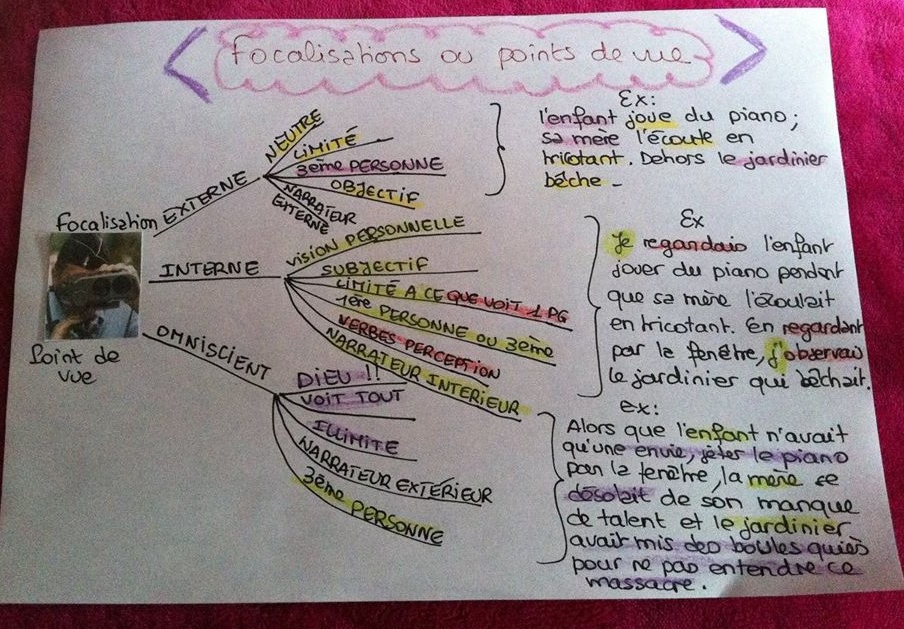 Focalisations ou points de vue
Focalisation
Point de
vue
EXTERNE
NEUTRE
LIMITÉ
3ème PERSONNE
OBJECTIF
NARRATEUR
EXTERNE
Ex:
l'enfant joue du piano;
sa mère l'écoute en
tricotant. Dehors le jardinier
bêche -
INTERNE
VISION PERSONNELLE
SUBJECTIF
LIMITÉ A CE QUE VOIT 1 PG
1ère PERSONNE OU 3ème
VERBES PERCEPTION
NARRATEUR INTERIEUR
Ex
Je regardais l'enfant
jouer du piano pendant
que sa mère l'écoutait
en tricotant. En regardant
par la fenêtre, j'observais
le jardinier qui bêchait.
OMNISCIENT
DIEU !!
VOIT TOUT
ILLIMITÉ
NARRATEUR EXTÉRIEUR
3ème PERSONNE
ex:
Alors que l'enfant n'avait
qu'une envie, jeter le piano
par la fenêtre, la mère se
désolait de son manque
de talent et le jardinier
avait mis des boules quiès
pour ne pas entendre ce
massacre.